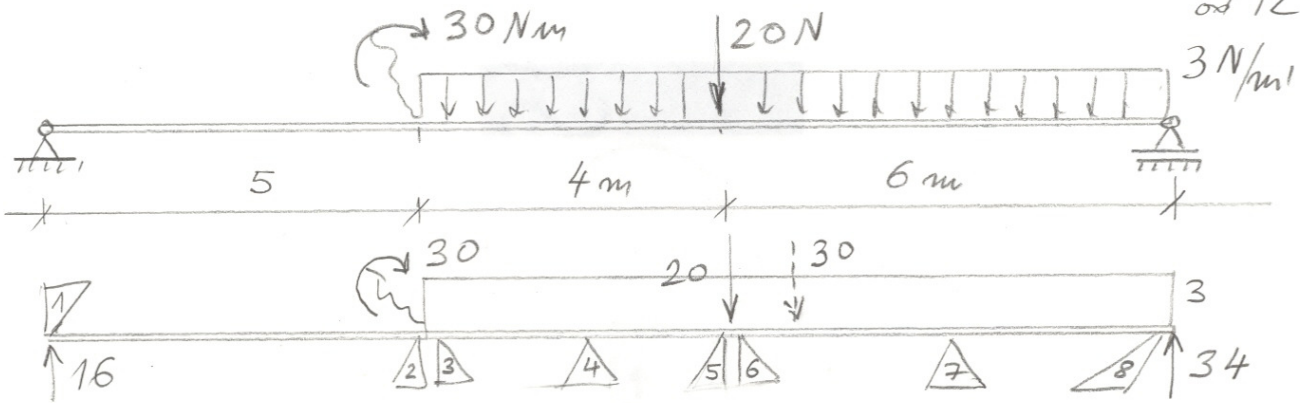 30 Nm
20 N
3 N/m'
5
4 m
6 m
30
20
30
3
1
16
2
3
4
5
6
7
8
34